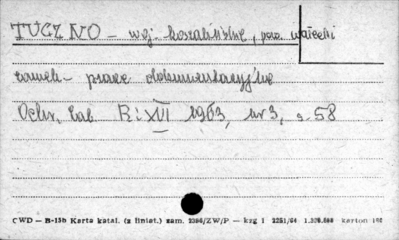 TUCZNO - woj. koszalińskie, pow. wałecki
zamek - prace dokumentacyjne
Ochr. Zab. R: XVI 1963, nr 3, s. 58
CWD — B-15b Karta katal. (z liniat.) zam. 2386/ZW/P — kzg 1 2251/64 karton